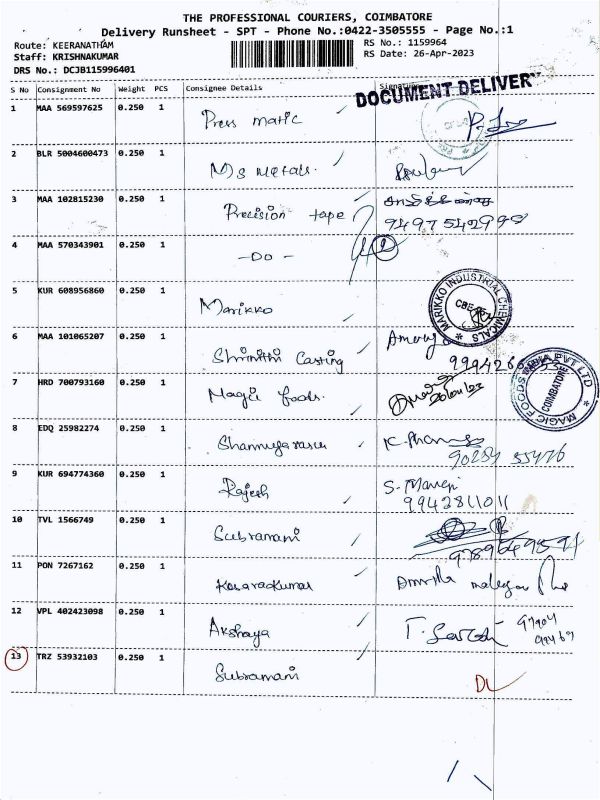 THE PROFESSIONAL COURIERS, COIMBATORE
Delivery Runsheet - SPT - Phone No.:0422-3505555 - Page No.:1
Route: KEERANATHAM
RS No.: 1159964
Staff: KRISHNAKUMAR
RS Date: 26-Apr-2023
DRS No.: DCJB115996401
S No Consignment No Weight PCS Consignee Details Signature
DOCUMENT DELIVERY
1 MAA 569597625 0.250 1 Press matic
2 BLR 5004600473 0.250 1 M/s Metals.
3 MAA 102815230 0.250 1 Precision tape
9497542998
4 MAA 570343901 0.250 1 -DO-
5 KUR 608956860 0.250 1 Marikko
MARIKKO INDUSTRIAL CHEMICALS
CBE
6 MAA 101065207 0.250 1 Shrinithi Casting
7 HRD 700793160 0.250 1 Magic foods.
MAGIC FOODS INDIA PVT LTD
COIMBATORE
8 EDQ 25982274 0.250 1 Shanmugarasu
9 KUR 694774360 0.250 1 Rajesh S. Maneri
9942811011
10 TVL 1566749 0.250 1 Subramani
11 PON 7267162 0.250 1
12 VPL 402423098 0.250 1 Akshaya
13 TRZ 53932103 0.250 1 Subramani DL